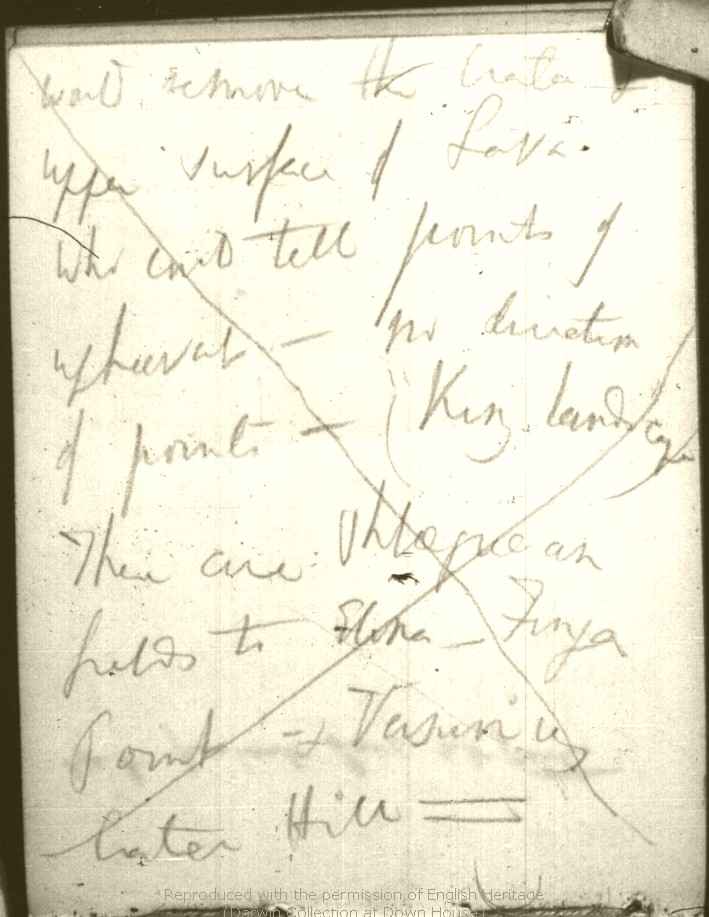 would remove the Crater &
upper surface of Lava.
Who could tell points of
upheaval — no direction
of points — (King landscape)
There are Phlegræan
fields to Etna —
Point → Vesuvius
Crater Hill =
Reproduced with the permission of English Heritage
(Darwin Collection at Down House)